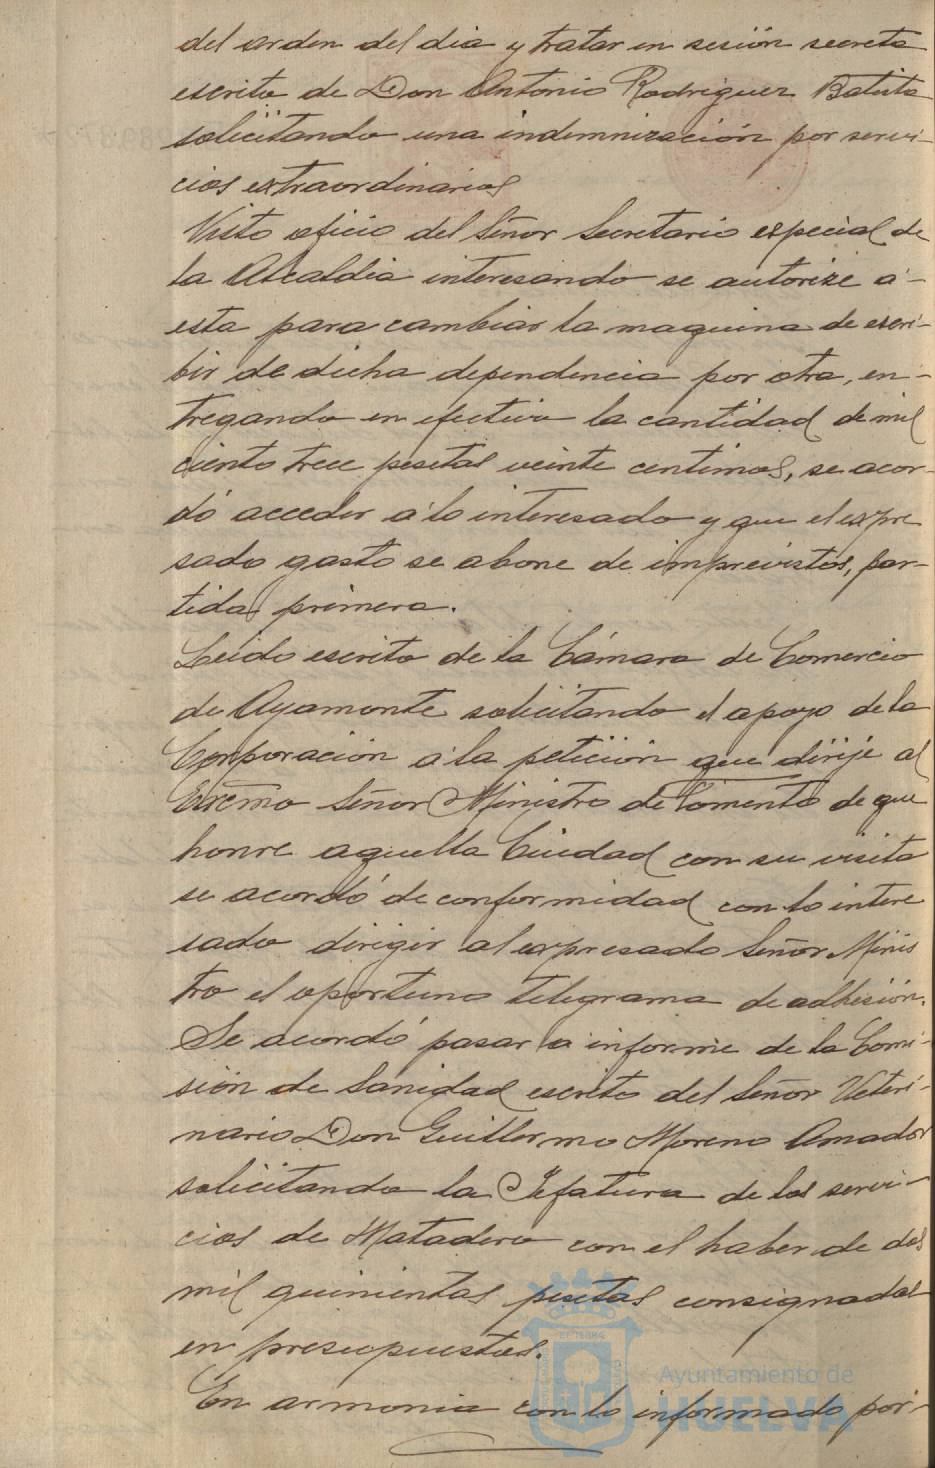 del orden del dia y tratar en sesión secreta
escrito de Don Antonio Rodriguez Batista
solicitando una indemnización por servi-
cios extraordinarios
Visto oficio del Señor Secretario especial de
la Alcaldia interesando se autorize á-
esta para cambiar la maquina de escri-
bir de dicha dependencia por otra, en-
tregando en efectivo la cantidad de mil
ciento trece pesetas veinte centimos, se acor-
dó acceder á lo interesado y que el expre
sado gasto se abone de imprevistos, par-
tida primera.
Leido escrito de la Cámara de Comercio
de Ayamonte solicitando el apoyo de la
Corporación á la petición que dirije al
Excmo Señor Ministro de Fomento de que
honre aquella Ciudad con su visita
se acordó de conformidad con lo intere
sado dirigir al expresado Señor Minis
tro el oportuno telegrama de adhesión.
Se acordó pasar a informe de la Comi-
sión de Sanidad escrito del Señor Veteri-
nario Don Guillermo Moreno Amador
solicitando la Jefatura de los servi-
cios de Matadero con el haber de dos
mil quinientas pesetas consignadas
en presupuestos.
En armonia con lo informado por-
Ayuntamiento de
HUELVA